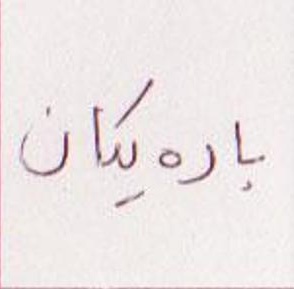 باره یکان